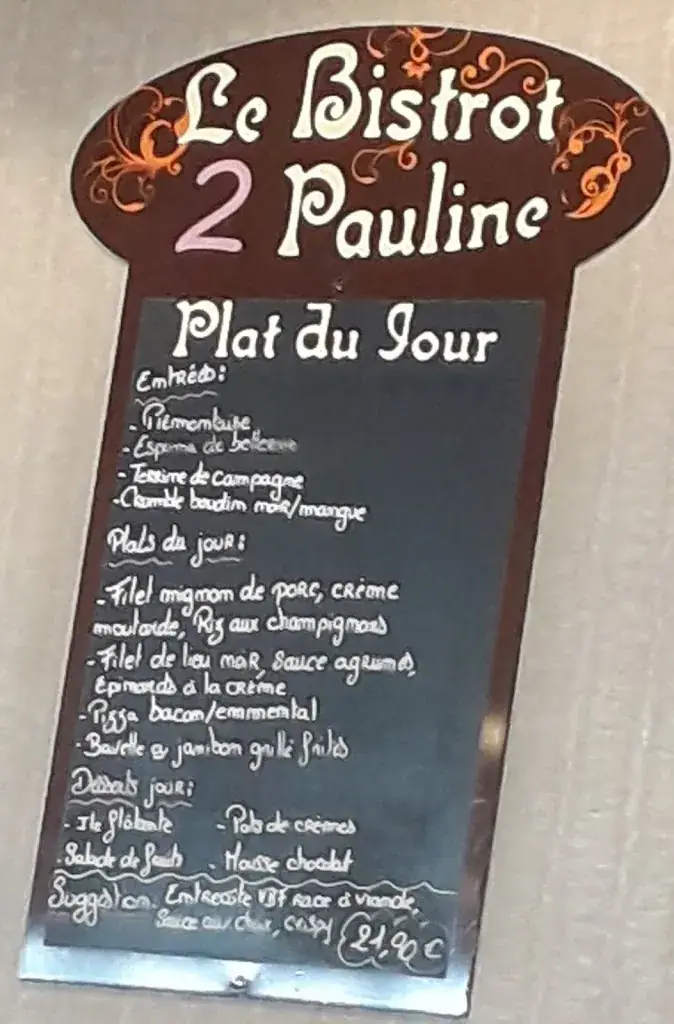 Le Bistrot
2 Pauline
Plat du Jour
Entrées:
- Piémontaise
- Espuma de betterave
- Terrine de campagne
- Crumble boudin noir/mangue
Plats du jour:
- Filet mignon de porc, crème
moutarde, Riz aux champignons
- Filet de lieu noir, sauce agrumes,
Epinards à la crème
- Pizza bacon/emmental
- Bavette ou jambon grillé frites
Desserts jour:
- Ile flottante - Pots de crèmes
- Salade de fruits - Mousse chocolat
Suggestion: Entrecôte VBF Race à viande,
Sauce au choix, 21,90 €